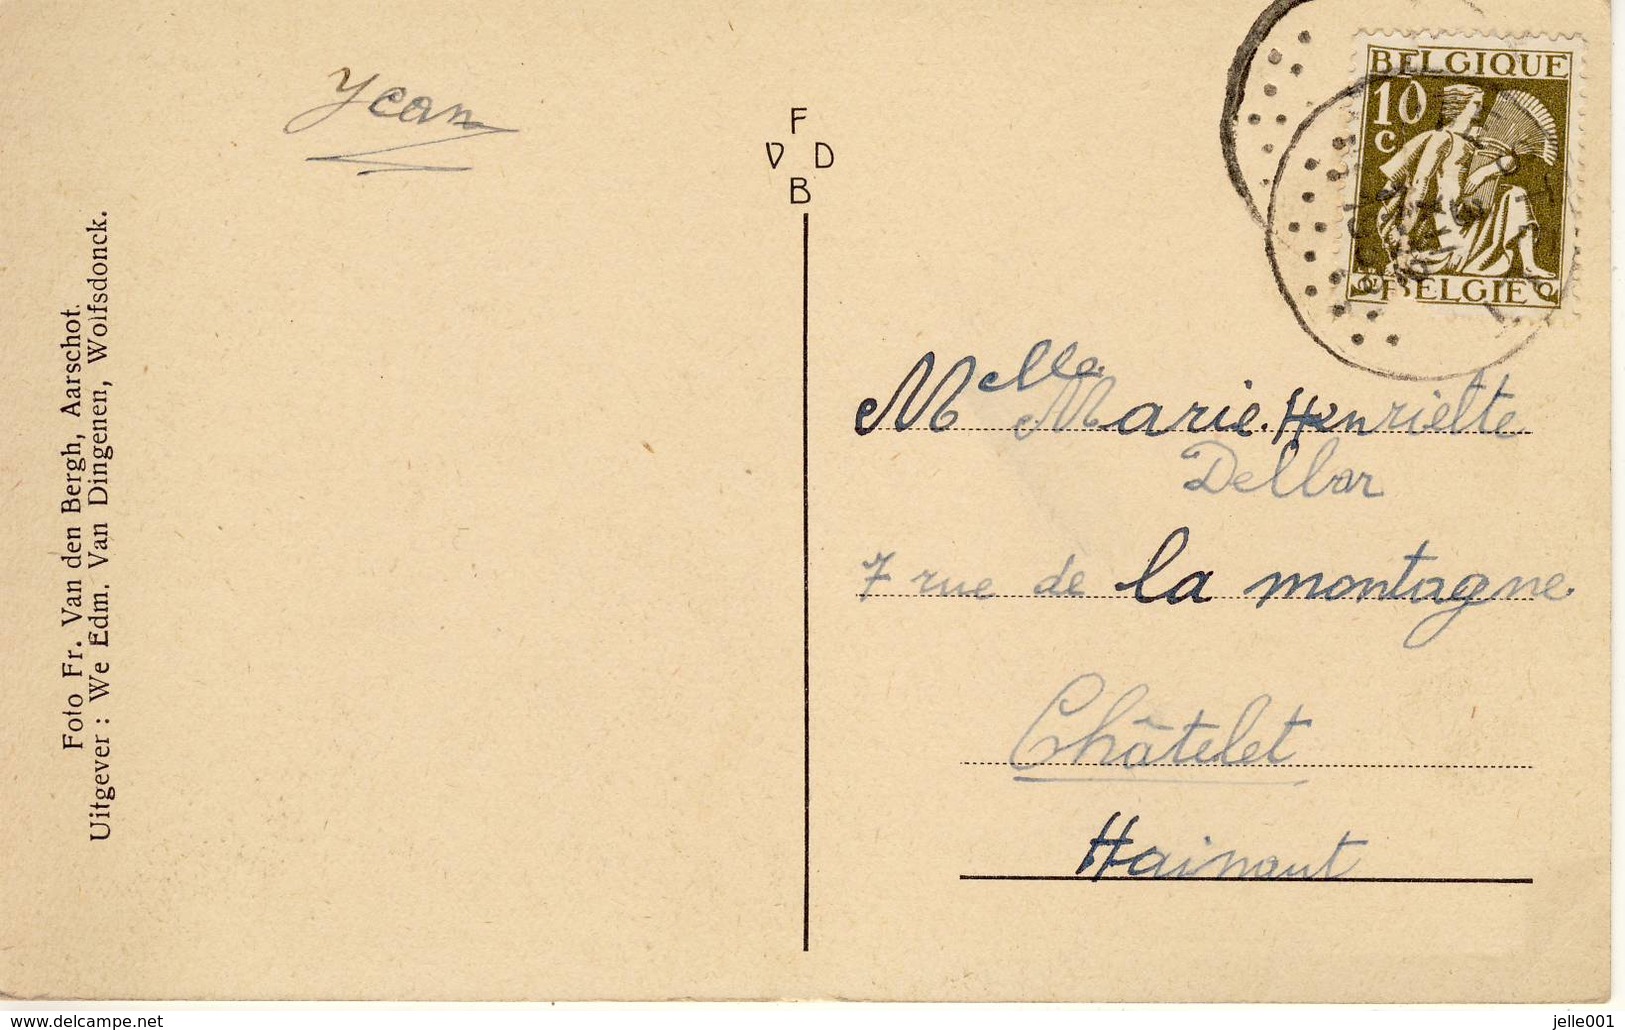 Jean
F
V D
B
Foto Fr. Van den Bergh, Aarschot.
Uitgever : We Edm. Van Dingenen, Wolfsdonck.
BELGIQUE
10
c
BELGIE
Melle Marie-Henriette
Delbar
7 rue de la montagne
Châtelet
Hainaut
www.delcampe.net
jelle001